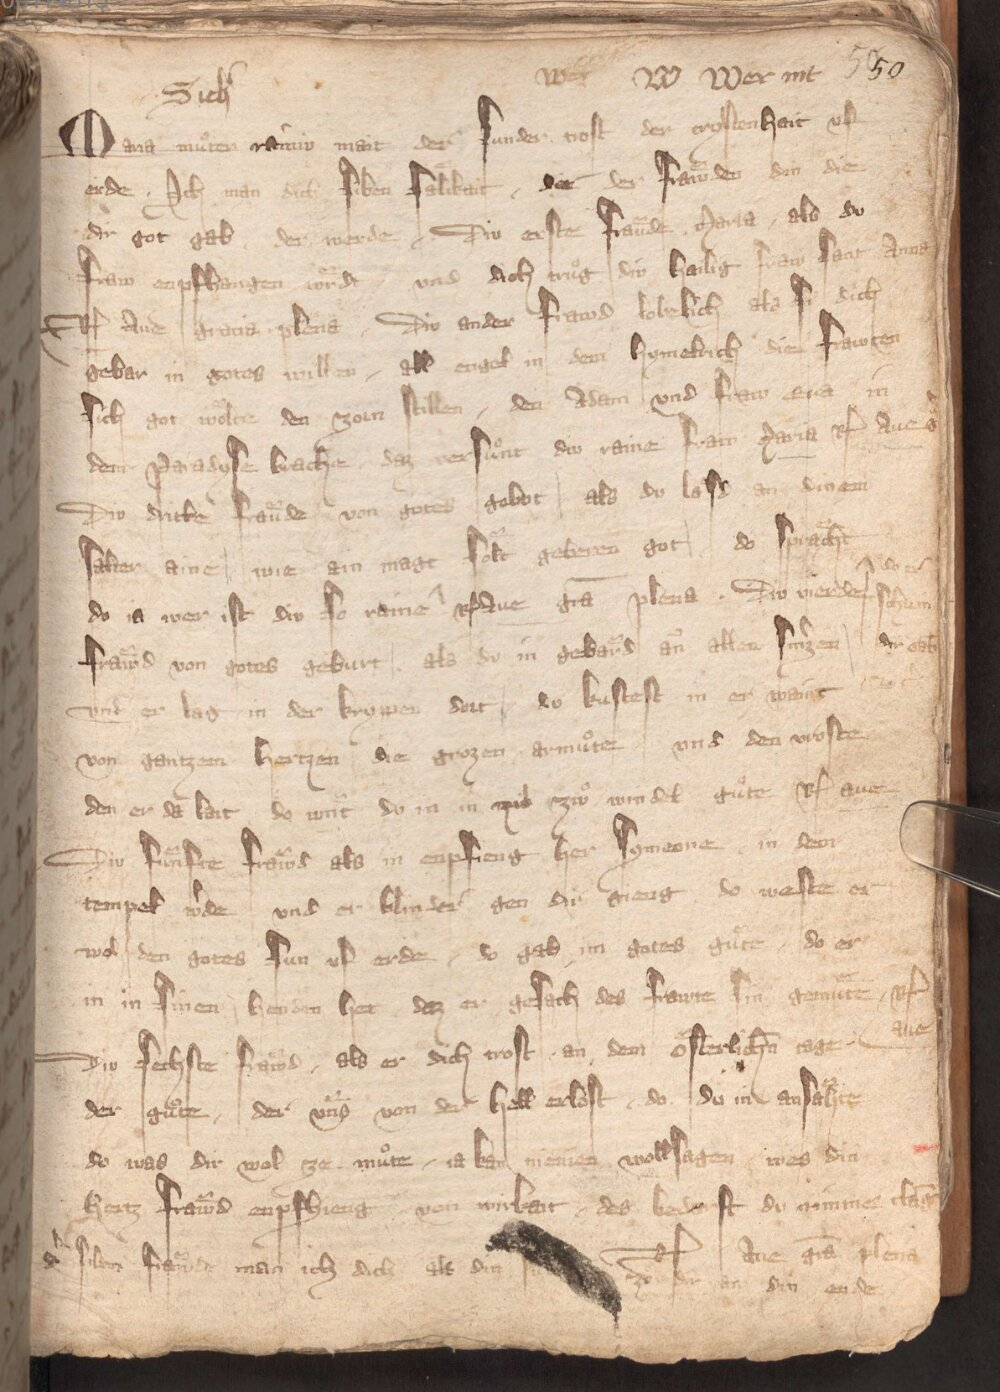 wer W Wer mt 50
Sich
Maria muͦter rainiv mait der sunder trost der cristenhait vf
erde . Ich man dich siben sälikait . der frawden din die
dir got gab . der werde . Div erste fraude Maria . als do
fraw enpfhangen wrde vnd dich truͦg div hailig fraw sant Anna
Rf Aue gracia plena . Div ander frawd lobelich als si dich
gebar in gotes willen . all engel in dem hymelrich die frawten
sich got wolte den zorn stillen . den Adam vnd fraw eua in
dem Paradyse brachte . daz versuͦnt div raine fraw Maria Rf Aue g
Div dritte fraude von gotes gebot / als do last an dinem
salter aine / wie ain magt solt geberen got / do sprächt
do ia wer ist div so raine Rf Aue gra plena . Div vierde
frawd von gotes geburt . als do in gebard an allen smerzen /
vnd er lag in der kryppen dort / do kustest in er waint
von gantzem hertzen die grozen armuͦte vnd den vroste
den er da lait do wint do in in zwo windel guͦte Rf aue
Div funfte frawd als in enpfieng her Symeone . in dem
tempel werde vnd er blinder gen dir gieng do weste er
wol den gotes sun vf erde . do gab im gotes guͦte . do er
in in sinen henden het daz er gesach des frawte sin gemuͤte . Rf
aue
Div sechste frawd . als er dich trost . an dem osterlichen tage
der guͦte . der vns von der hell erlost . do du in ansähte
do was dir wol ze muͦte . ia kan niemen woll sagen wes din
hertz frawd enpfhieng von wirkait . des bedarft du nimmer clag
Rf Aue gra plena
siben frawde man ich dich als din
ze dir an din ende